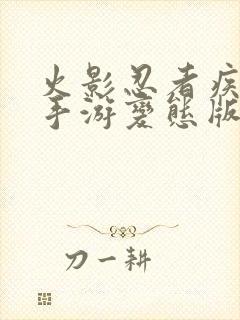 火影忍者疾
手游变态版
刀一耕